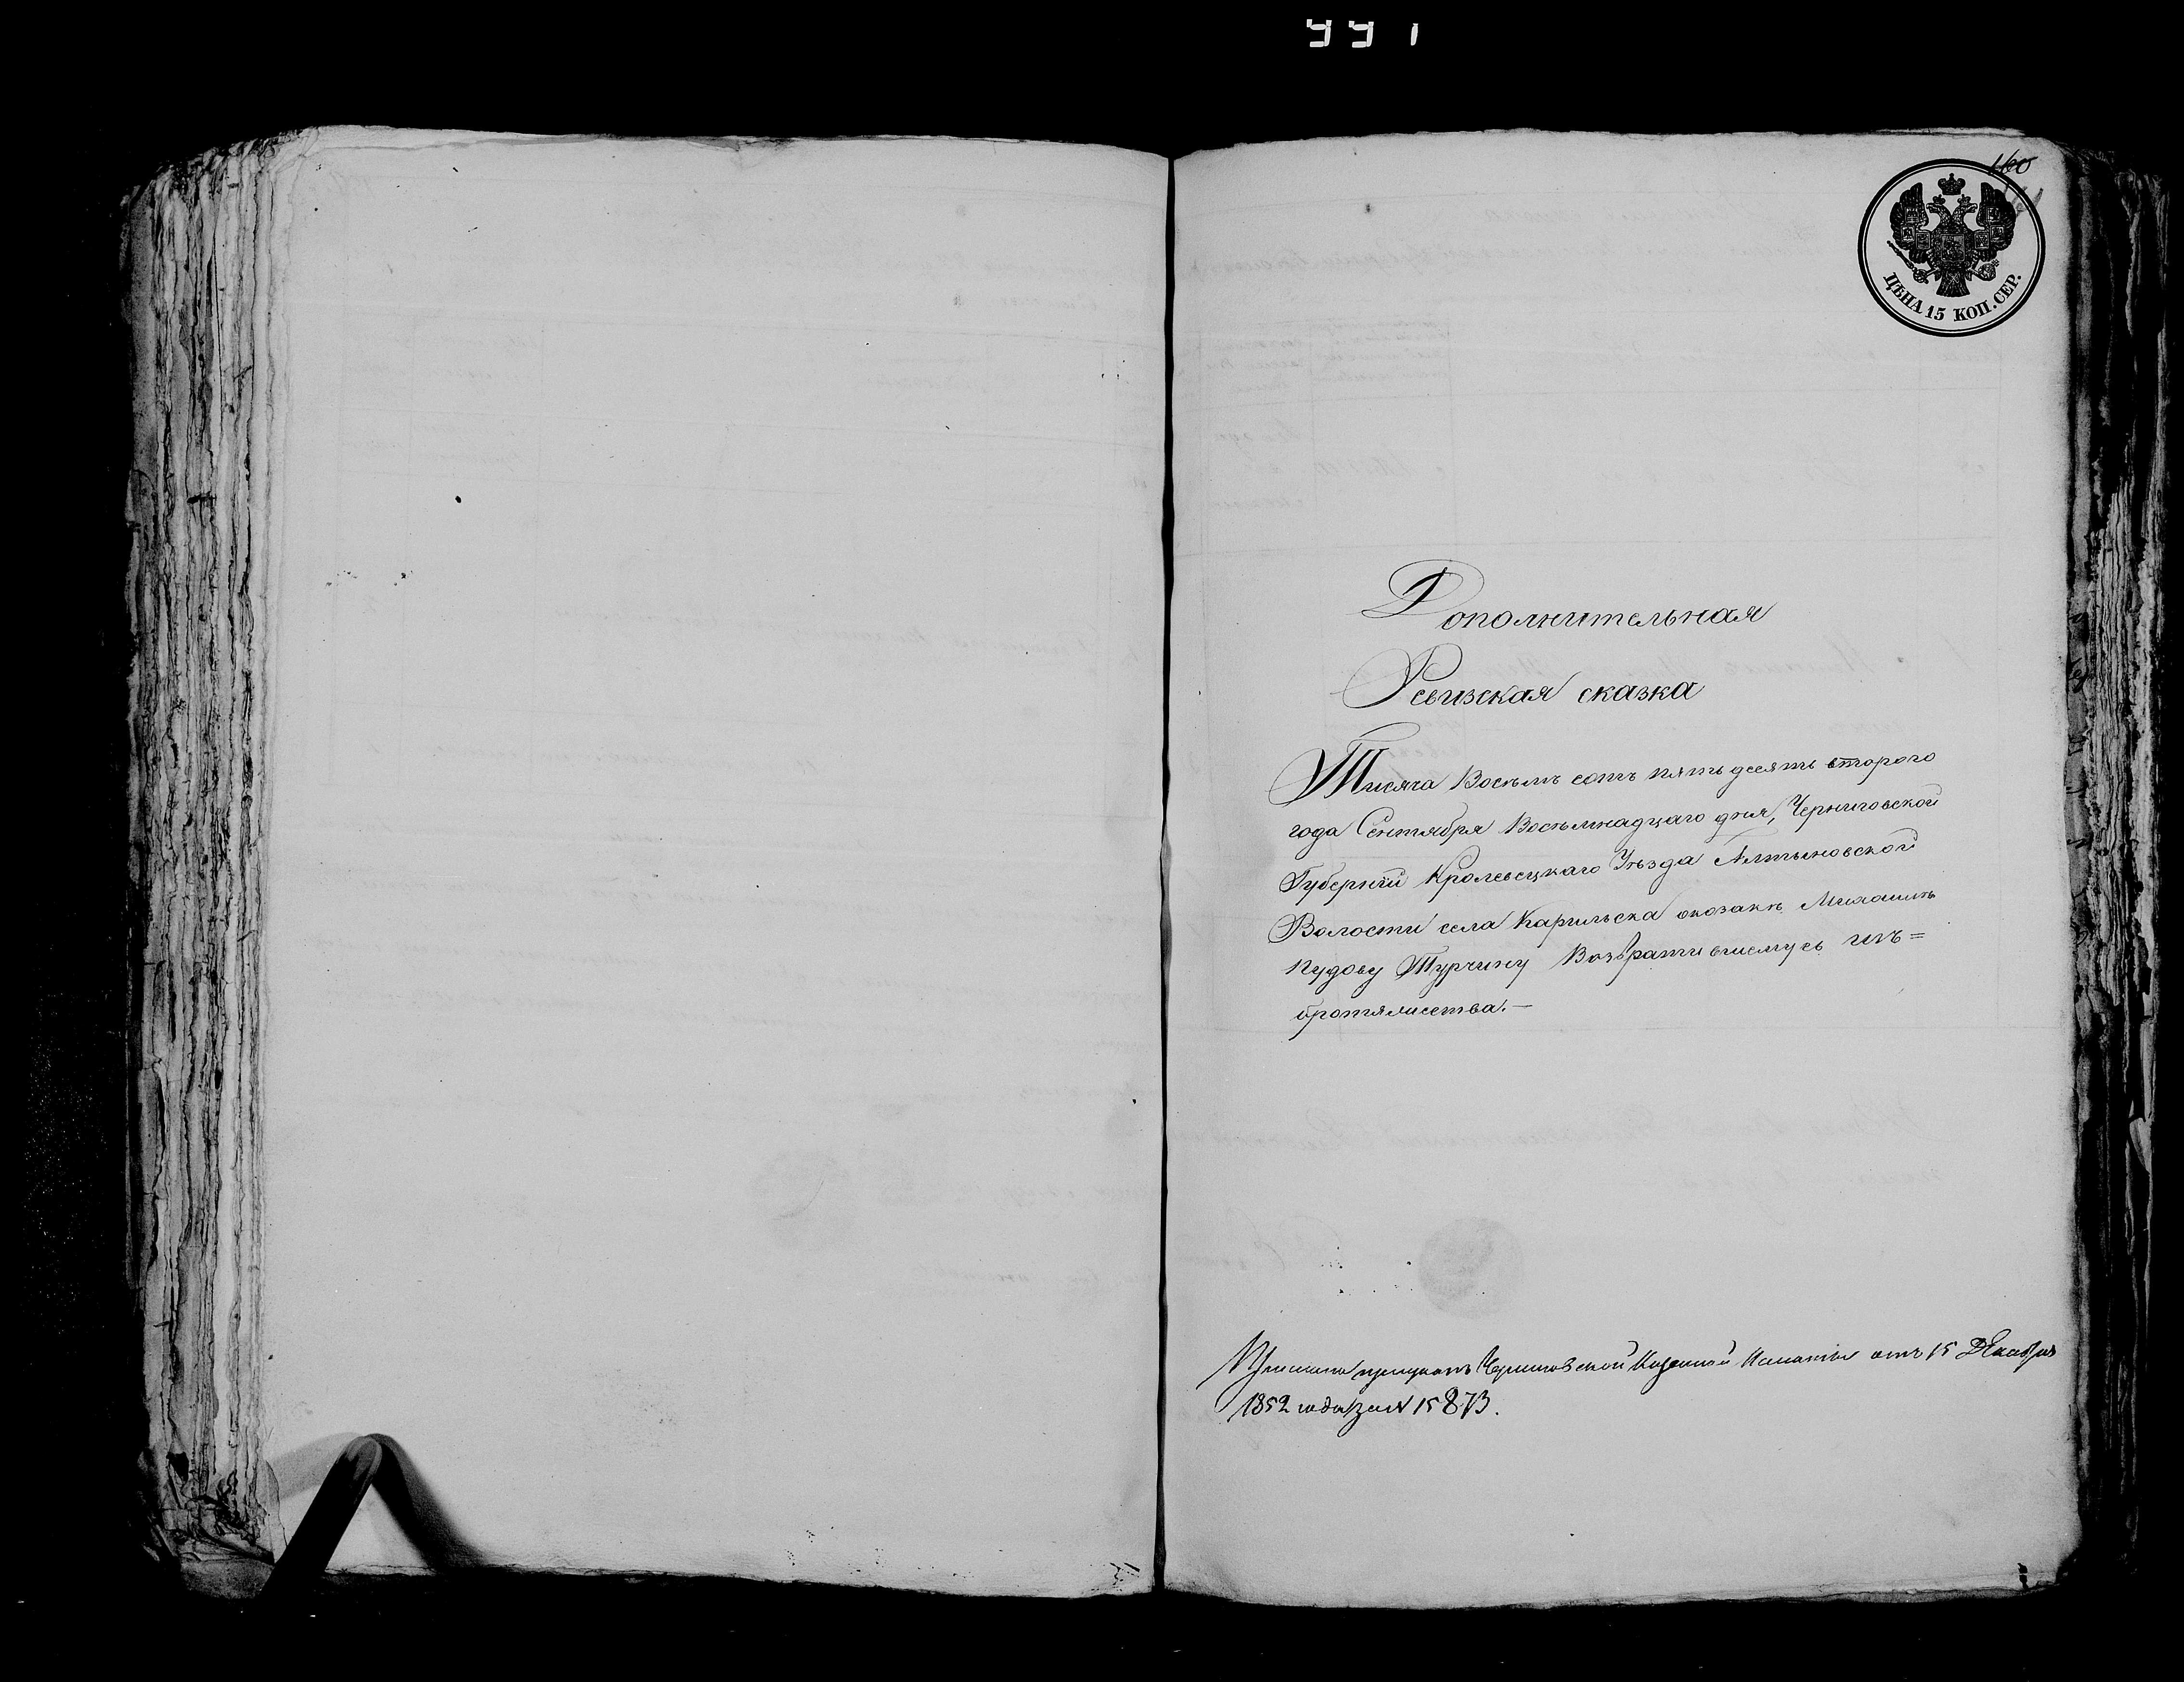 160
ЦѢНА 15 КОП. СЕР.
Дополнительная
Ревизская сказка
Тисяча Восѣмъ сотъ пятьдесятъ второго
года Сентября Восѣмнадцаго дня, Черниговской
Губерніи Кролевецкаго Уѣзда Алтыновской
Волости села Карильска окозакѣ Михаилѣ
Пудову Турчину Возвратившемусь изъ=
бротяжества.—
Черниговской Казенной Палаты отъ 15 Декабря
1852 года за № 15873.